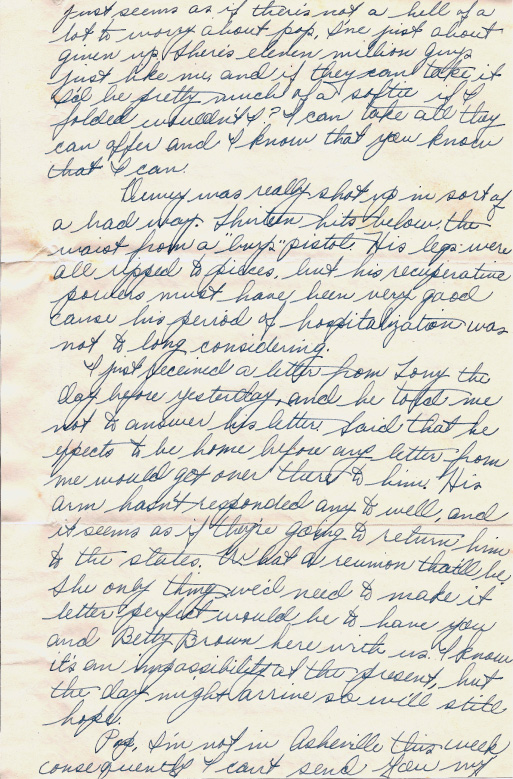 just seems as if there's not a hell of a
lot to worry about pop. I've just about
given up. There's eleven million guys
just like me, and if they can take it
I'd be pretty much of a softie if I
folded wouldn't I? I can take all they
can offer and I know that you know
that I can.
Dewey was really shot up in sort of
a bad way. Thirteen hits below the
waist from a burp pistol. His legs were
all ripped to pieces, but his recuperative
powers must have been very good
cause his period of hospitalization was
not to long considering.
I just received a letter from Tony the
day before yesterday, and he told me
not to answer his letter. Said that he
expects to be home before any letter from
me would get over there to him. His
arm hasn't responded any to well, and
it seems as if they're going to return him
to the states. What a reunion that'll be
The only thing we'd need to make it
letter perfect would be to have you
and Betty Brown here with us. I know
it's an impossibility at the present, but
the day might arrive so will still
hope.
Pop, I'm not in Asheville this week
consequently I can't send you my